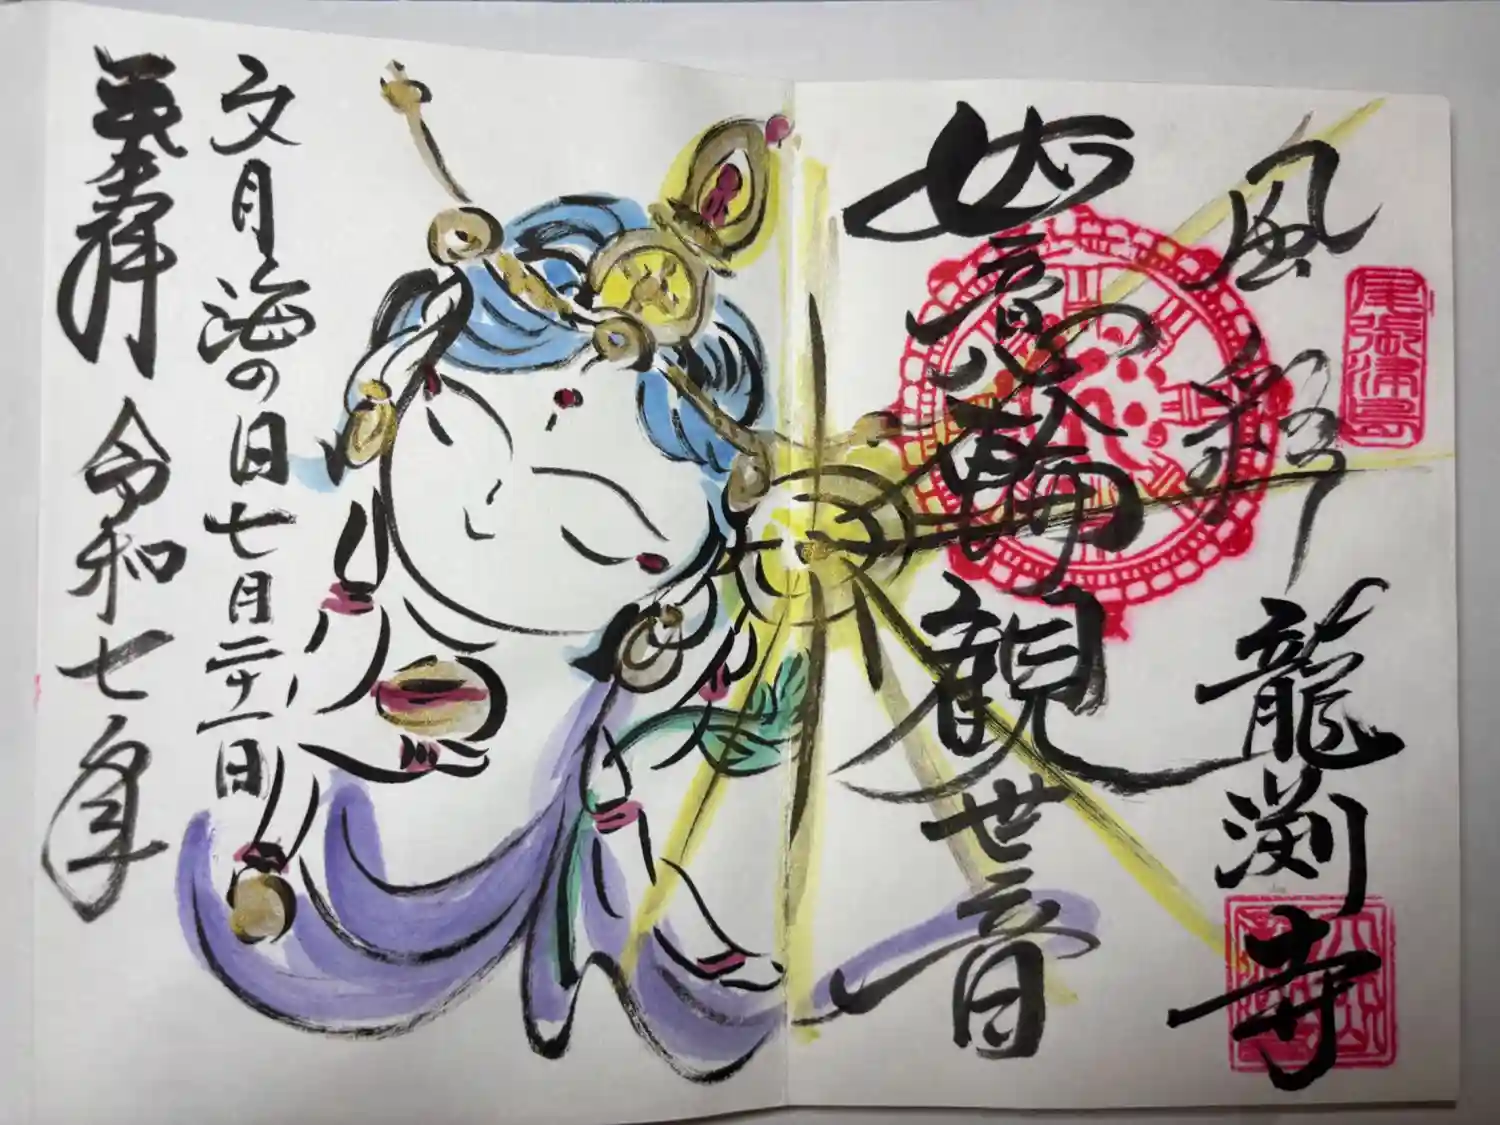 尾張津島
風彩
龍渕寺
如意輪
観世音
文月海の日七月二十一日
奉拝
令和七年